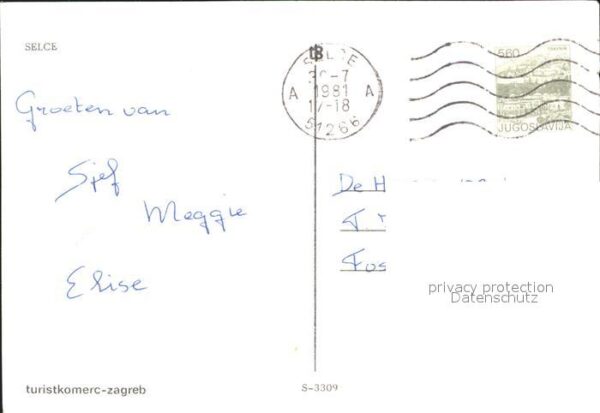 SELCE
Groeten van
Sjef
Meggie
Elise
turistkomerc-zagreb
SELCE
30-7
A 1981 A
17-18
51266
5.60
JUGOSLAVIJA
De H
T
Fos
privacy protection
Datenschutz
S-3309